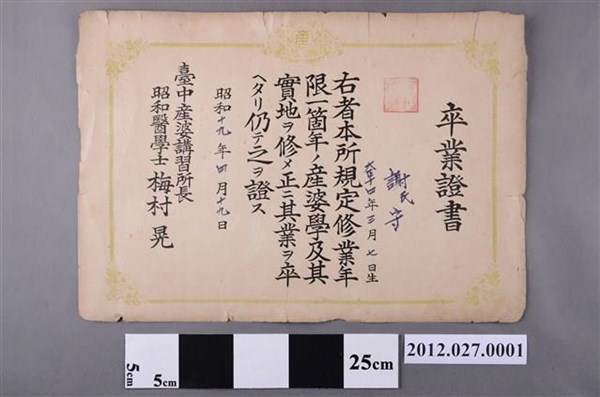 産
卒業證書
謝氏守
大正十四年三月七日生
右者本所規定修業年
限一箇年ノ産婆學及其
實地ヲ修メ正ニ其業ヲ卒
ヘタリ仍テ之ヲ證ス
昭和十九年四月十九日
臺中産婆講習所長
昭和醫學士 梅村晃
5cm
5cm
25cm
2012.027.0001